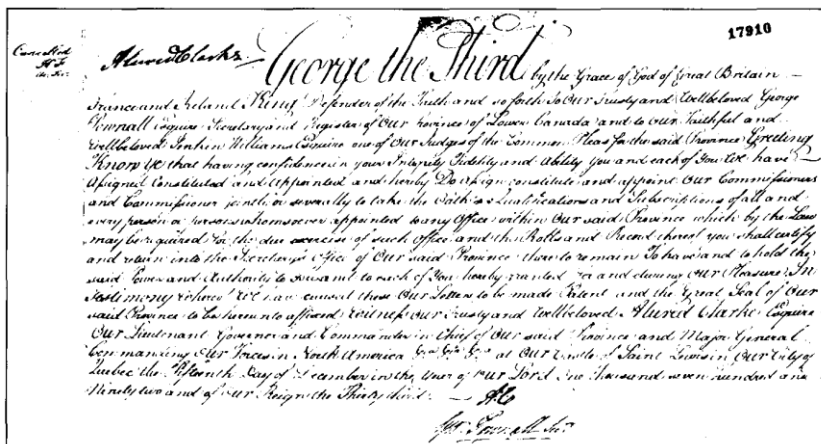 17910
Cancelled
Alured Clarke
George the Third by the Grace of God of Great Britain
France and Ireland King Defender of the Faith and so forth To Our Trusty and Wellbeloved George
Pownall Esquire Secretary and Register of Our Province of Lower Canada and to Our Faithful and
Wellbeloved Jenkin Williams Esquire one of Our Judges of the Common Pleas for the said Province Greeting
Know Ye that having confidence in your Integrity Fidelity and Ability You and each of You We have
Assigned Constituted and Appointed and hereby Do Assign constitute and appoint Our Commissioners
and Commissioner jointly or severally to take the Oaths Qualifications and Subscriptions of all and
every person or persons whomsoever appointed to any Office within Our said Province which by the Law
may be required for the due exercise of such Office and the Rolls and Record thereof you shall certify
and return into the Secretarys Office of Our said Province there to remain To have and to hold the
said Power and Authority to you and to each of You hereby granted for and during Our Pleasure In
Testimony whereof We have caused these Our Letters to be made Patent and the Great Seal of Our
said Province to be hereunto affixed Witness Our Trusty and Wellbeloved Alured Clarke Esquire
Our Lieutenant Governor and Commander in Chief of Our said Province and Major General
Commanding Our Forces in North America at Our Castle of Saint Lewis in Our City of
Quebec the Fifteenth Day of December in the Year of Our Lord One thousand seven hundred and
Ninety two and of Our Reign the Thirty third. A.C
Geo: Pownall Secy